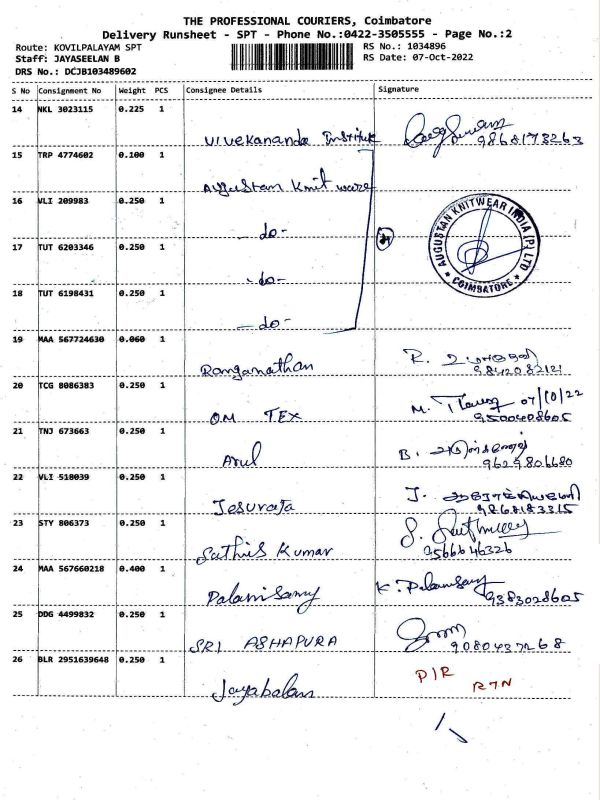 THE PROFESSIONAL COURIERS, Coimbatore
Delivery Runsheet - SPT - Phone No.:0422-3505555 - Page No.:2
Route: KOVILPALAYAM SPT
RS No.: 1034896
Staff: JAYASEELAN B
RS Date: 07-Oct-2022
DRS No.: DCJB103489602
S No Consignment No Weight PCS Consignee Details Signature
14 NKL 3023115 0.225 1
Vivekananda Institute 9868173263
15 TRP 4774602 0.100 1
Augustan Knit ware
16 VLI 209983 0.250 1
- do -
AUGUSTAN KNITWEAR INDIA (P) LTD
* COIMBATORE *
17 TUT 6203346 0.250 1
- do -
18 TUT 6198431 0.250 1
- do -
19 MAA 567724630 0.060 1
Ranganathan R. 9842082121
20 TCG 8086383 0.250 1
OM TEX M. 07/10/22
9500408605
21 TNJ 673663 0.250 1
Arul B. 9629806680
22 VLI 518039 0.250 1
Jesuraja J. 9868183315
23 STY 806373 0.250 1
Sathis Kumar S. 9566646326
24 MAA 567660218 0.400 1
Palanisamy K. Palanisamy 9383028605
25 DDG 4499832 0.250 1
SRI ASHAPURA 9080437268
26 BLR 2951639648 0.250 1
Jayabalan P/R RTN